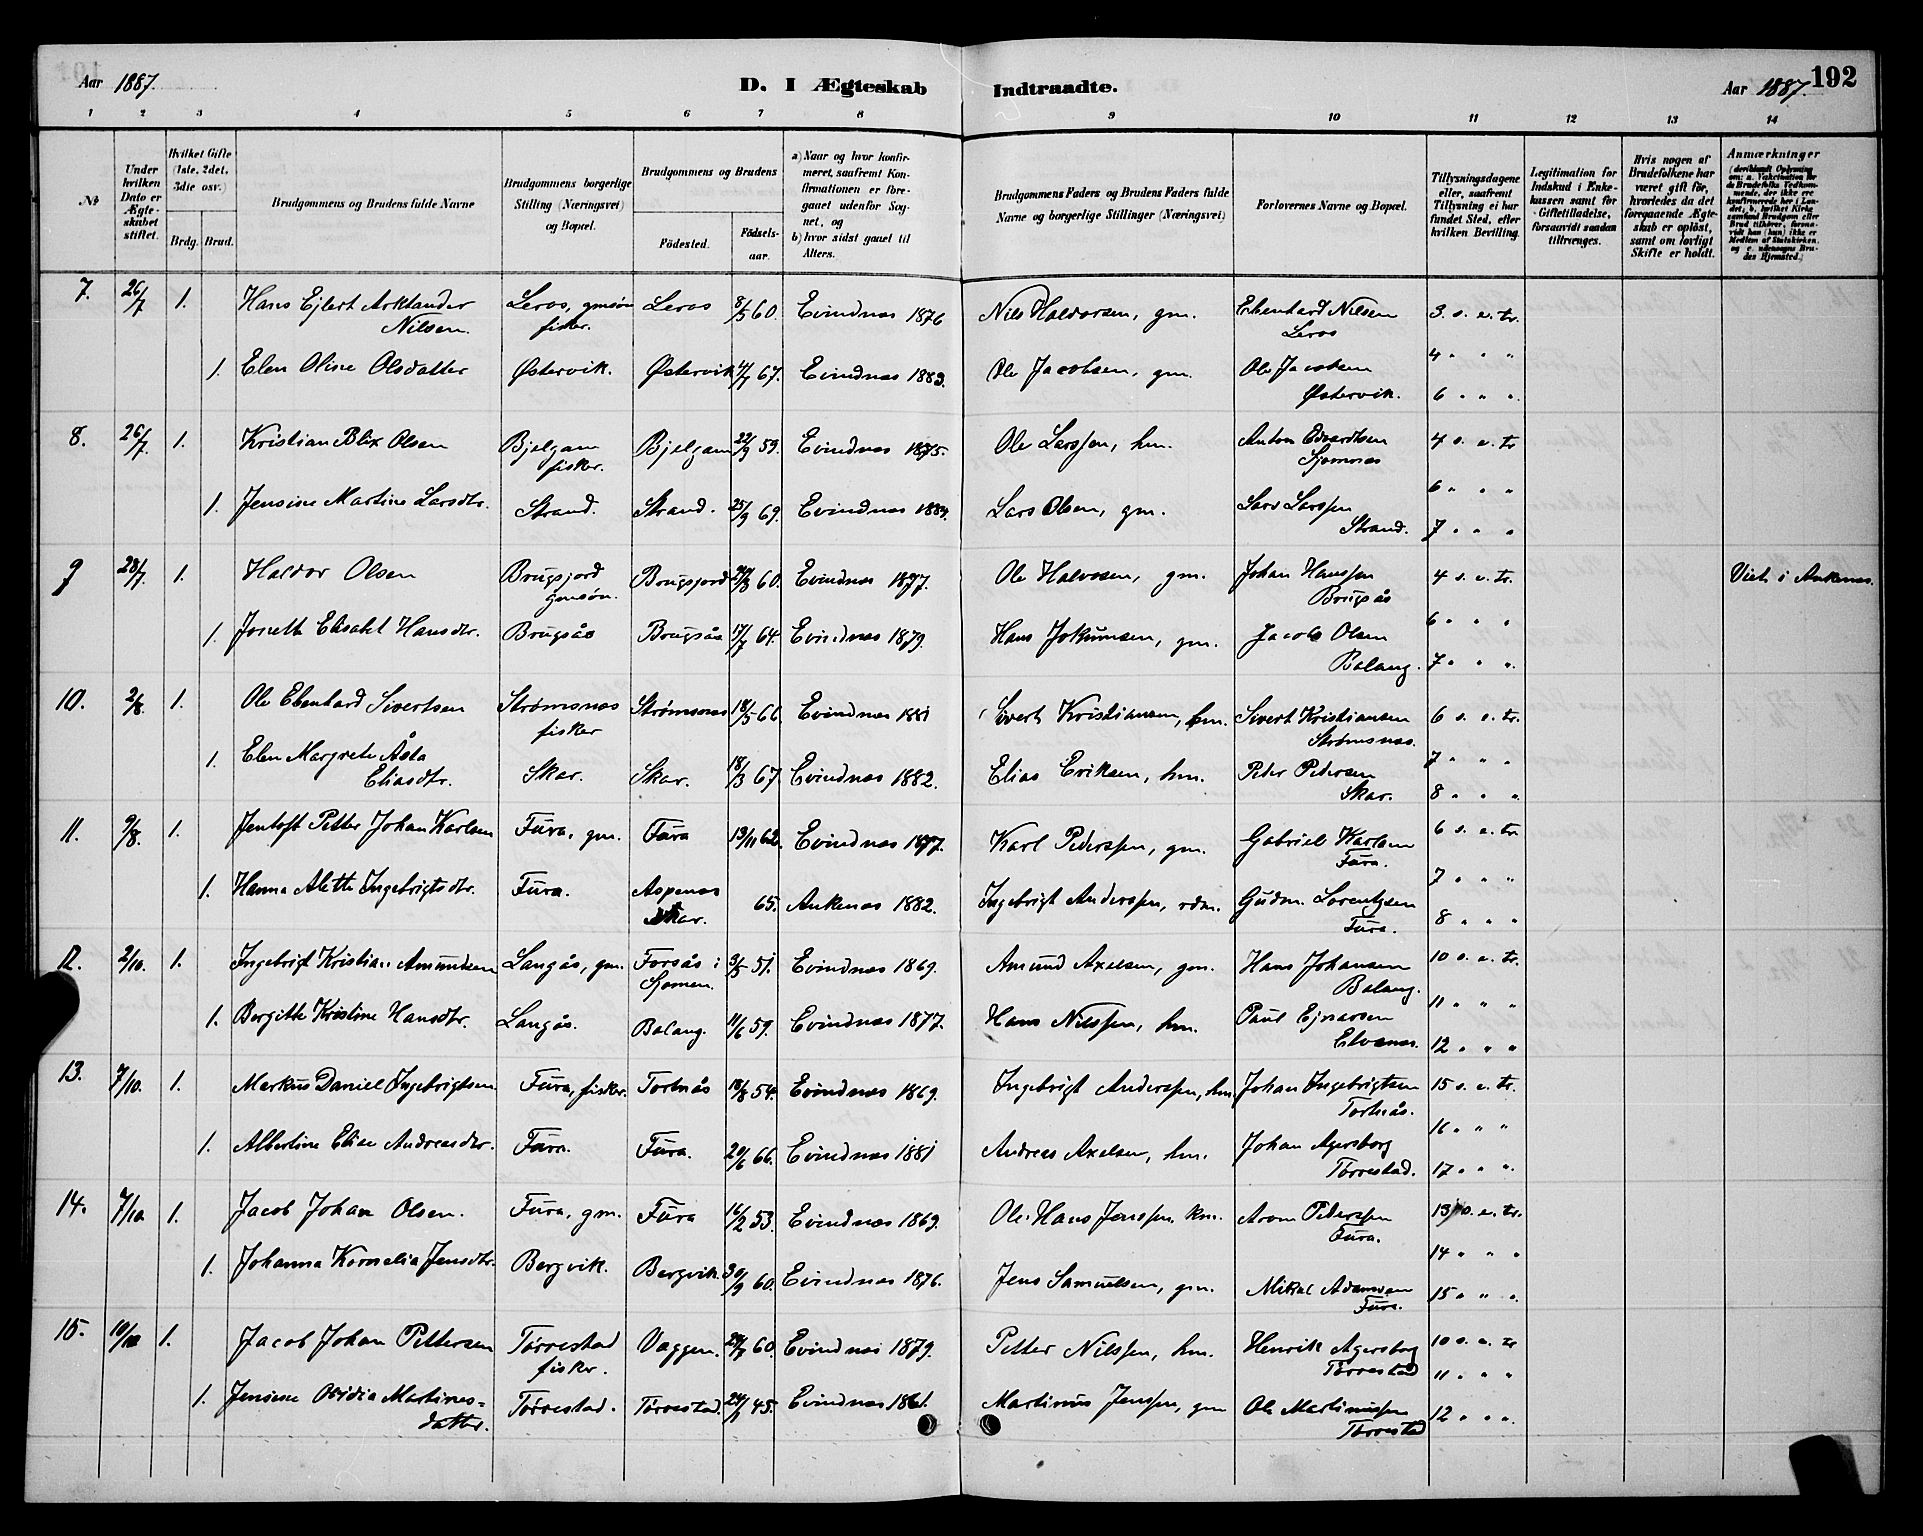 Aar 1887. D. I Ægteskab Indtraadte. Aar 1887. 192
1 2 3 4 5 6 7 8 9 10 11 12 13 14
No
Under hvilken Dato er Ægteskabet stiftet.
Hvilket Gifte (1ste, 2det, 3die osv.)
Brdg. Brud.
Brudgommens og Brudens fulde Navne
Brudgommens borgerlige Stilling (Næringsvei) og Bopæl.
Brudgommens og Brudens
Födested. Födselsaar.
a) Naar og hvor konfirmeret, saafremt Konfirmationen er foregaaet udenfor Sognet, og
b) hvor sidst gaaet til Alters.
Brudgommens Faders og Brudens Faders fulde Navne og borgerlige Stillinger (Næringsvei)
Forlovernes Navne og Bopæl.
Tillysningsdagene eller, saafremt Tillysning ei har fundet Sted, efter hvilken Bevilling.
Legitimation for Indskud i Enkekassen samt for Giftetilladelse, forsaavidt saadan tiltrænges.
Hvis nogen af Brudefolkene har været gift för, hvorledes da det foregaaende Ægteskab er oplöst, samt om lovligt Skifte er holdt.
Anmærkninger
(deriblandt Oplysning om: a. Vaccination for de Brudefolks Vedkommende, der ikke ere konfirmerede her i Landet, b. hvilket Kirkesamfund Brudgom eller Brud tilhører, forsaavidt han (hun) ikke er Medlem af Statskirken, og c. udensogns Brudes Hjemsted.)
7. 26/7 1. Hans Ejlert Arktander Nilsen. Leros, gmsøn fisker. Leros 8/5 60. Evindnes 1876 Nils Haldorsen, gm. Ebenhard Nilsen Leros 3. s. e. tr.
1. Elen Oline Olsdatter Østervik. Østervik 67. Evindnes 1883. Ole Jacobsen, gm. Ole Jacobsen Østervik. 4 " " " 6 " " "
8. 26/7 1. Kristian Blix Olsen Bjelgam fisker. Bjelgam 22/9 59. Evindnes 1875. Ole Larssen, hm. Anton Edvardsen Sjomnes 4 s. e. tr
1. Jensine Martine Larsdtr. Strand. Strand. 25/9 69. Evindnes 1884. Lars Olsen, gm. Lars Larssen Strand. 6 " " " 7 " " "
9 28/7. 1. Haldor Olsen Brugsjord gmsøn. Brugsjord 60. Evindnes 1877. Ole Halvosen, gm. Johan Hanssen Brugsås 4 s. e. tr. Viet i Ankenes.
1. Jonette Elisabet Hansdtr. Brugsås Brugsås 17/7 64. Evindnes 1879. Hans Jokumsen, gm. Jacob Olsen Balang. 6 " " " 7 " " "
10. 2/8. 1. Ole Ebenhard Sivertsen Strømsnes fisker Strømsnes 18/5 66. Evindnes 1881 Sivert Kristiansen, hm. Sivert Kristiansen Strømsnes. 6 s. e. tr.
1. Elen Margrete Åsta Eliasdtr. Skar. Skar. 18/3 67. Evindnes 1882. Elias Eriksen, hm. Peter Pedersen Skar. 7 " " " 8 " " "
11. 9/8. 1. Jentoft Petter Johan Karlsen Fura, gm. Fura 13/11 62. Evindnes 1877. Karl Pederssen, gm. Gabriel Karlsen Fura. 6 s. e. tr
1. Hanna Alette Ingebrigtsdtr. Fura. Aspenes Skar. 65. Ankenes 1882. Ingebrigt Anderssen, rdm. Gudm. Lorentzen Fura. 7 " " " 8 " " "
12. 2/10. 1. Ingebrigt Kristian Amundsen Langås, gm. Forsås i Sjomen. 3/5 51. Evindnes 1869. Amund Axelsen, gm. Hans Johansen Balang. 10 s. e. tr.
1. Bergitte Kristine Hansdtr. Langås. Balang. 11/6 59. Evindnes 1877. Hans Nilssen, hm. Paul Ejnarsen Elvenes. 11 " " " 12 " " "
13. 7/10. 1. Markus Daniel Ingebrigtsen Fura, fisker. Tortnås 18/8 54. Evindnes 1869. Ingebrigt Anderssen, hm. Johan Ingebrigtsen Tortnås. 15 s. e. tr.
1. Albertine Elise Andreasdtr. Fura. Fura. 20/6 66. Evindnes 1881 Andreas Axelsen, hm. Johan Agersborg Tørrestad. 16 " " " 17 " " "
14. 7/10 1. Jacob Johan Olsen. Fura, gm. Fura 16/2 53. Evindnes 1869. Ole Hans Jenssen, km. Aron Pederssen Fura. 13 s. e. tr.
1. Johanna Kornelia Jensdtr. Bergvik. Bergvik. 30/9 60. Evindnes 1876. Jens Samuelsen, gm. Mikal Adamsen Fura. 14 " " " 15 " " "
15. 10/10 1. Jacob Johan Pettersen Tørrestad fisker. Vaggen. 60. Evindnes 1879. Petter Nilssen, hm. Henrik Agersborg Tørrestad 10 s. e. tr
1. Jensine Ovidia Martines= datter. Tørrestad. Tørrestad. 24/1 45. Evindnes 1861. Martinus Jenssen, gm Ole Martinussen Tørrestad 11 " " " 12 " " "